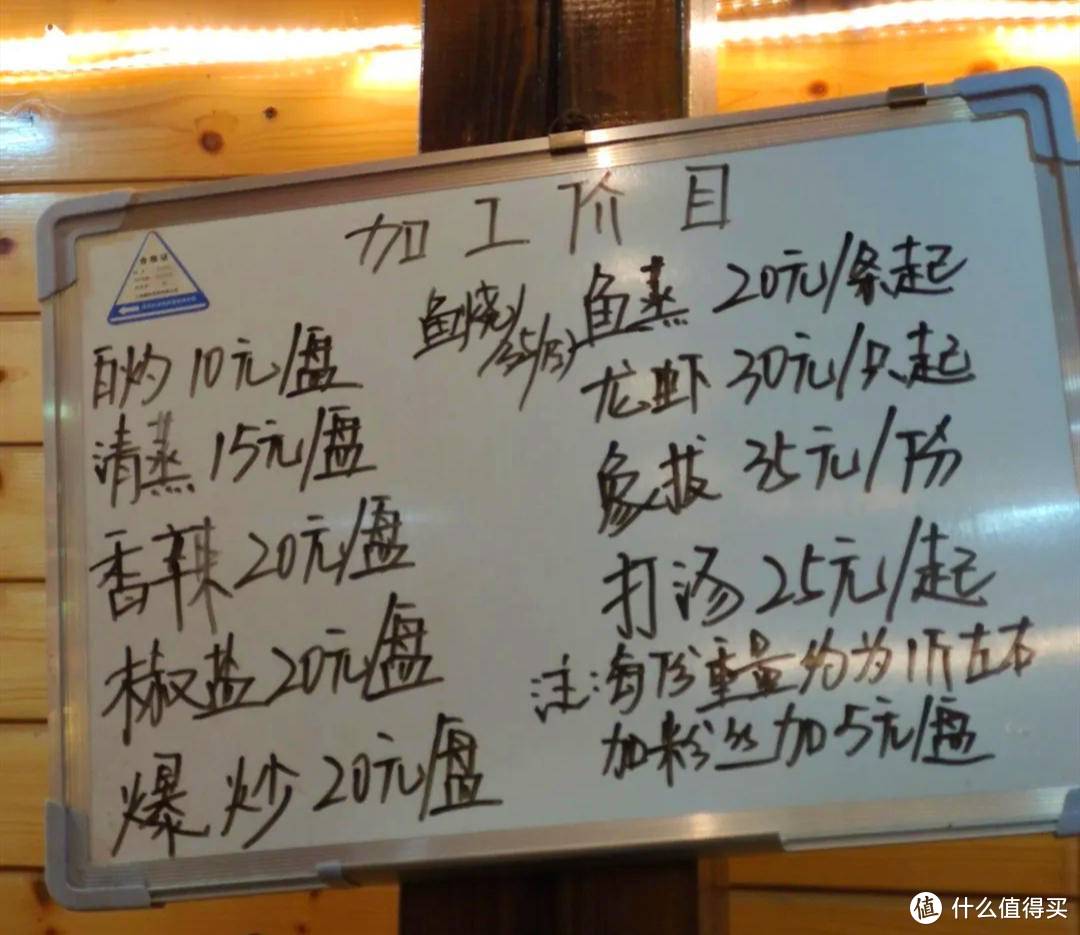 加工价目
白灼 10元/盘
清蒸 15元/盘
香辣 20元/盘
椒盐 20元/盘
爆炒 20元/盘
鱼烧/35/份
鱼蒸 20元/条起
龙虾 30元/只起
象拔 35元/份
打汤 25元/起
注:每份重量约为1斤左右
加粉丝加5元/盘
合格证
值 什么值得买